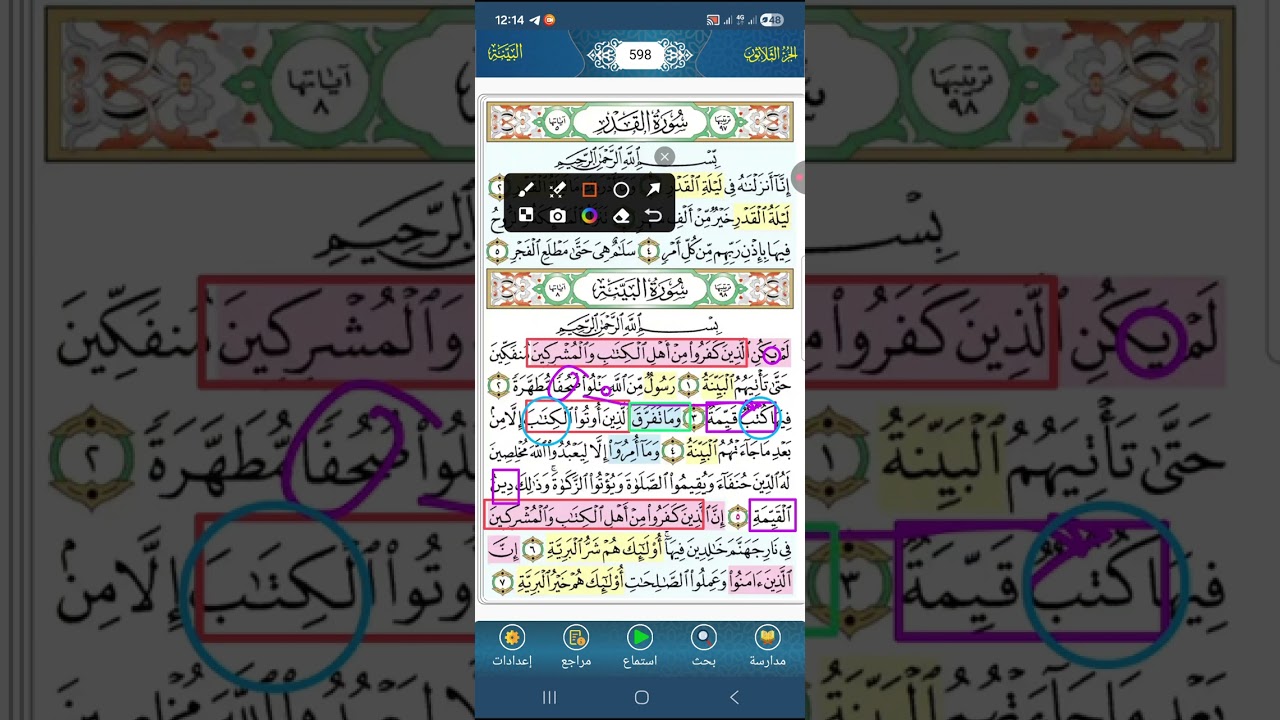 12:14
4G
48
البَيِّنَة
598
الجزء الثلاثون
ترتيبها ٩٧
سُورَةُ القَدْرِ
آياتها ٥
بِسْمِ اللَّهِ الرَّحْمَٰنِ الرَّحِيمِ
إِنَّا أَنزَلْنَاهُ فِي لَيْلَةِ الْقَدْرِ
٢
لَيْلَةُ الْقَدْرِ خَيْرٌ مِّنْ أَلْفِ
فِيهَا بِإِذْنِ رَبِّهِم مِّن كُلِّ أَمْرٍ ٤ سَلَامٌ هِيَ حَتَّىٰ مَطْلَعِ الْفَجْرِ ٥
ترتيبها ٩٨
سُورَةُ البَيِّنَةِ
آياتها ٨
بِسْمِ اللَّهِ الرَّحْمَٰنِ الرَّحِيمِ
لَمْ يَكُنِ الَّذِينَ كَفَرُوا مِنْ أَهْلِ الْكِتَابِ وَالْمُشْرِكِينَ مُنفَكِّينَ
حَتَّىٰ تَأْتِيَهُمُ الْبَيِّنَةُ ١ رَسُولٌ مِّنَ اللَّهِ يَتْلُوا صُحُفًا مُّطَهَّرَةً ٢
فِيهَا كُتُبٌ قَيِّمَةٌ ٣ وَمَا تَفَرَّقَ الَّذِينَ أُوتُوا الْكِتَابَ إِلَّا مِن
بَعْدِ مَا جَاءَتْهُمُ الْبَيِّنَةُ ٤ وَمَا أُمِرُوا إِلَّا لِيَعْبُدُوا اللَّهَ مُخْلِصِينَ
لَهُ الدِّينَ حُنَفَاءَ وَيُقِيمُوا الصَّلَوٰةَ وَيُؤْتُوا الزَّكَوٰةَ وَذَٰلِكَ دِينُ
الْقَيِّمَةِ ٥ إِنَّ الَّذِينَ كَفَرُوا مِنْ أَهْلِ الْكِتَابِ وَالْمُشْرِكِينَ
فِي نَارِ جَهَنَّمَ خَالِدِينَ فِيهَا أُولَٰئِكَ هُمْ شَرُّ الْبَرِيَّةِ ٦ إِنَّ
الَّذِينَ ءَامَنُوا وَعَمِلُوا الصَّالِحَاتِ أُولَٰئِكَ هُمْ خَيْرُ الْبَرِيَّةِ ٧
مدارسة
بحث
استماع
مراجع
إعدادات